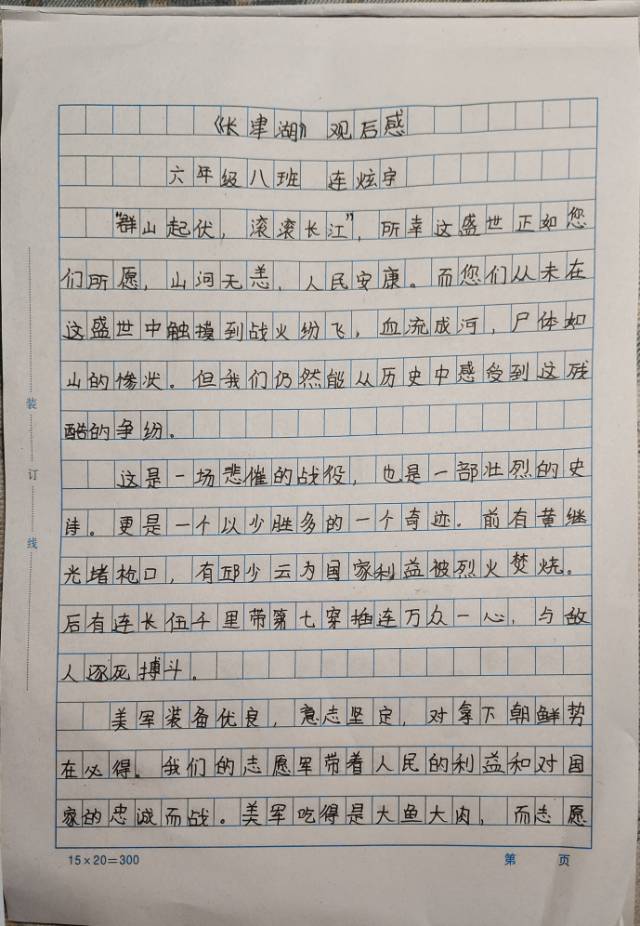 《长津湖》观后感
六年级八班 连炫宇
“群山起伏，滚滚长江”，所幸这盛世正如您
们所愿，山河无恙，人民安康。而您们从未在
这盛世中触摸到战火纷飞，血流成河，尸体如
山的惨状。但我们仍然能从历史中感受到这残
酷的争纷。
这是一场悲催的战役，也是一部壮烈的史
诗。更是一个以少胜多的一个奇迹．前有黄继
光堵枪口，有邱少云为国家利益被烈火焚烧。
后有连长伍千里带第七穿插连万众一心，与敌
人逐死搏斗．
美军装备优良，意志坚定，对拿下朝鲜势
在必得．我们的志愿军带着人民的利益和对国
家的忠诚而战。美军吃得是大鱼大肉，而志愿
装
订
线
15×20=300
第 页